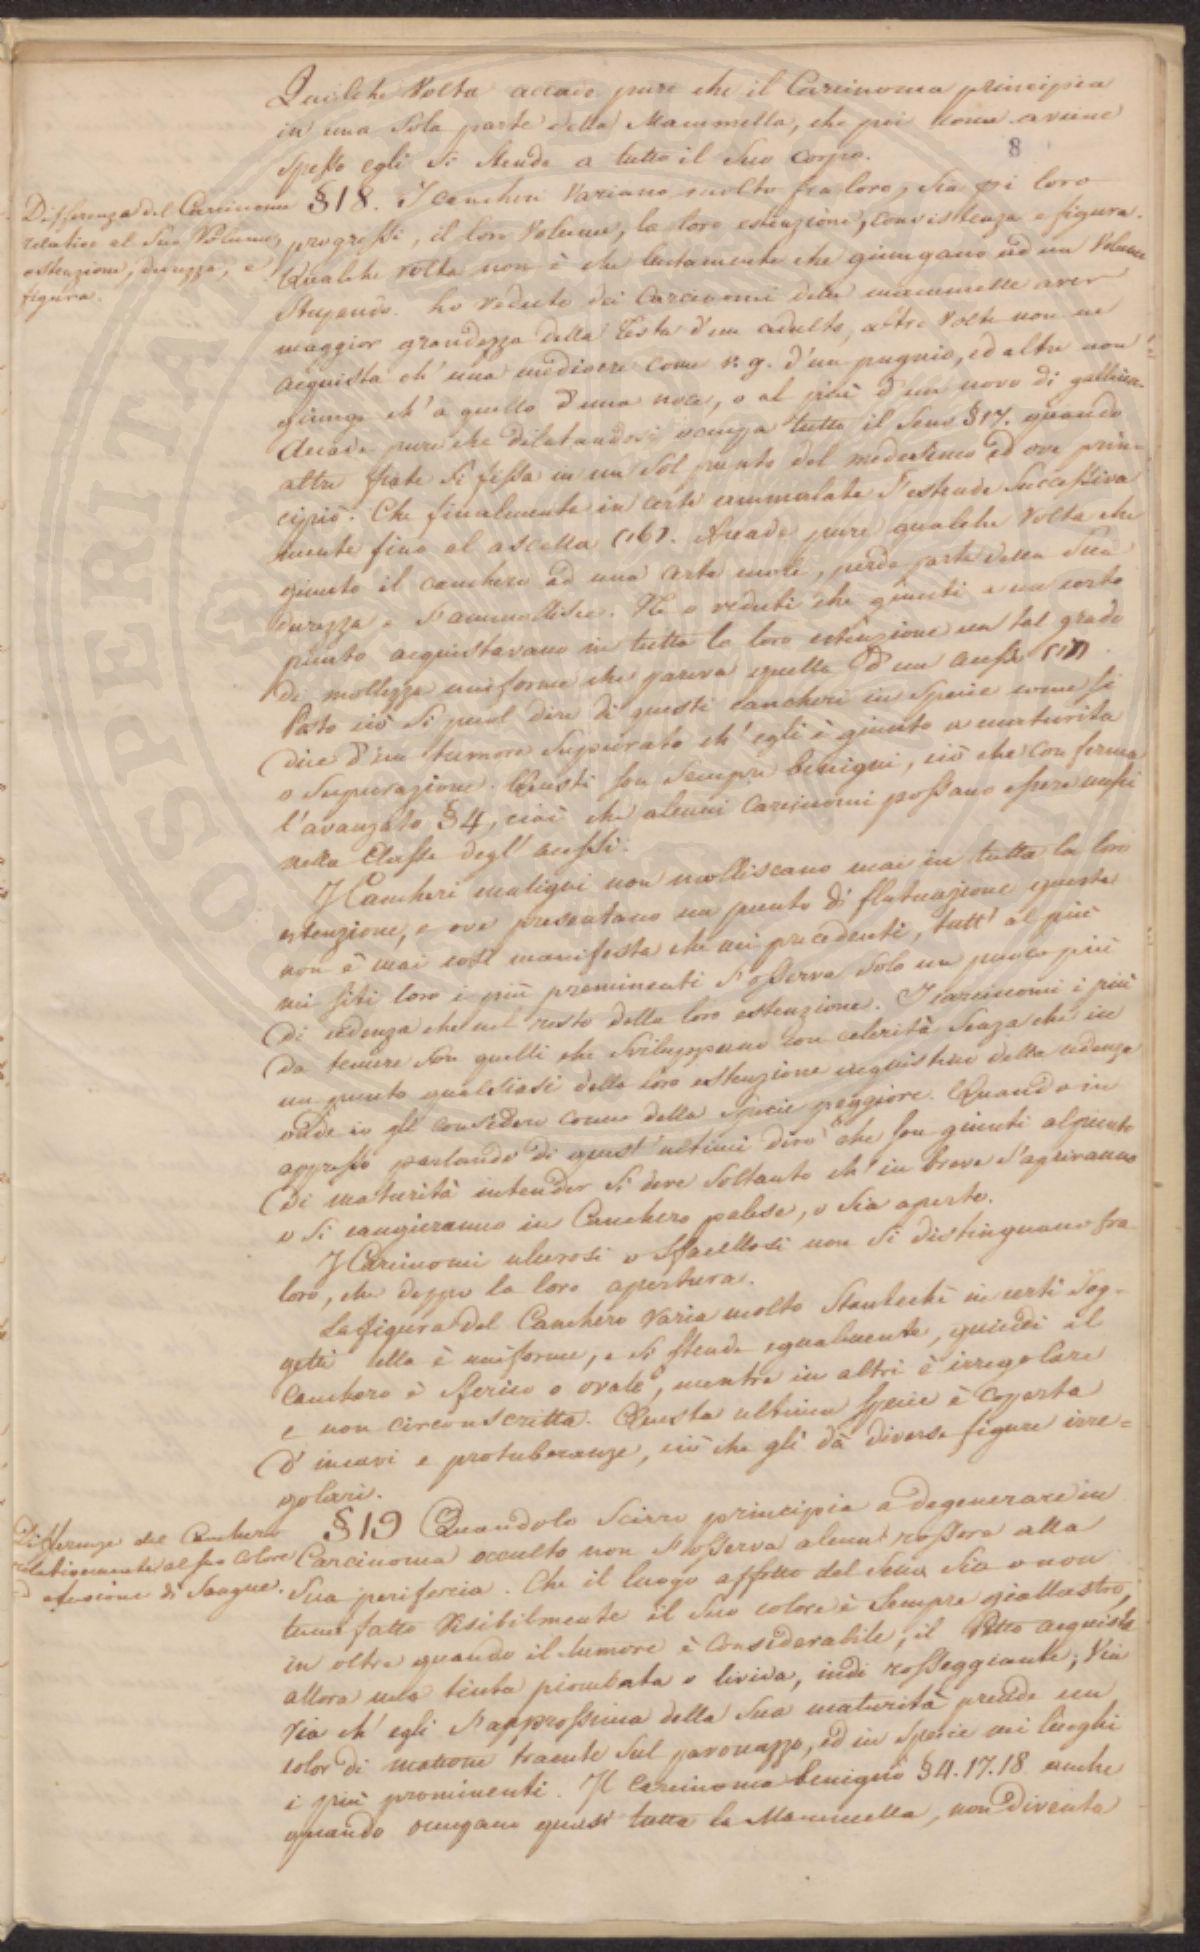 Qualche Volta accade pure che il Carcinoma principia
in una Sola parte della Mammella, che poi come aviene
8
Spesso egli Si Stende a tutto il Suo corpo.
Differenza del Carcinoma
relative al Suo Volume,
estenzione, durezza, e
figura.
§18. I cancheri Variano molto fra loro, Sia pei loro
progressi, il loro Volume, la loro estenzione, consistenza e figura.
Qualche volta non è che lentamente che giungano ad un Volume
Stupendo. ho veduto dei Carcinomi delle mammelle aver
maggior grandezza della Testa d'un adulto, altre Volte non ne
acquista ch' una mediocre come v. g. d'un pugnio, ed altre non
giunge ch' a quello d'una noce, o al più d'un novo di gallina.
Accade pure che dilatandosi occupa tutto il Seno §17. quando
altre fiate Si fissa in un Sol punto del medesimo ed ove prin-
cipiò. Che finalmente in certe ammalate S'estende Successiva
mente fino al ascella (16). Accade pure qualche Volta che
giunto il canchero ad una certa mole, perde parte della Sua
durezza e S'ammollisce. Ne o veduti che giunti a un certo
punto acquistavano in tutta la loro estenzione un tal grado
di mollezza uniforme che pareva quella d'un acesso (17)
Posto ciò Si puol dire di questi cancheri in Specie come Si
dice d'un tumore Supurato ch' egli è giunto a maturita
o Supurazione. Questi Son Sempre benigni, ciò che conferma
l'avanzato §4, cioè che alcuni Carcinomi possano essere messi
nella Classe degl' acessi.
I Cancheri maligni non molliscano mai in tutta la loro
estenzione, e ove presentano un punto di flutuazione questa
non è mai così manifesta che nei precedenti, tutt' al più
nei siti loro i più preminenti S'osserva Solo un puoco più
di cedenza che nel resto della loro estenzione. I carcinomi i più
da temere Son quelli che Sviluppano con celerità Senza che in
un punto qualsiasi della loro estenzione acquistino della cedenza
onde io gli considero come della Specie peggiore. Quando in
appresso parlando di quest' ultimi dirò che Son giunti al punto
di maturità intender Si deve Soltanto ch' in breve S'apriranno
o Si cangieranno in Canchero palese, o Sia aperto.
I Carcinomi ulcerosi o Sfacellosi non Si distinguano fra
loro, che doppo la loro apertura.
La figura del Canchero Varia molto Stantechè in certi Sog-
getti ella è uniforme, e Si Stende egualmente, quindi il
Canchero è Sferico o ovale, mentre in altri è irregolare
e non circonscritta. Questa ultima Specie è coperta
d' incavi e protuberanze, ciò che gli dà diverse figure irre=
golari.
Differenze del Canchero
relativamente al suo Colore
ed efusione di Sangue.
§19 Quando lo Scirro principia a degenerare in
Carcinoma occulto non S'osserva alcuna rossera alla
Sua periferia. Che il luogo affetto del Seno Sia o non
tumefatto Visibilmente il Suo colore è Sempre gialla­stro,
in oltre quando il tumore è considerabile, il Petto acquista
allora una tinta piombata o livida, indi rosseggiante; Via
Via ch' egli S'approssima della Sua maturità prende un
color di marone traente Sul pavonazzo, ed in Specie nei luoghi
i più prominenti. Il Carcinoma benigno §4.17.18 anche
quando occupano quasi tutta la Mammella, non diventa